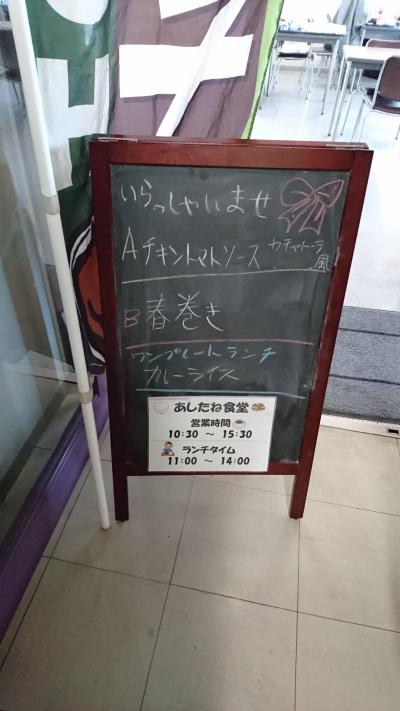 いらっしゃいませ
Aチキントマトソース カチャトーラ風
B春巻き
ワンプレートランチ
カレーライス
あしたね食堂
営業時間
10:30 ～ 15:30
ランチタイム
11:00 ～ 14:00